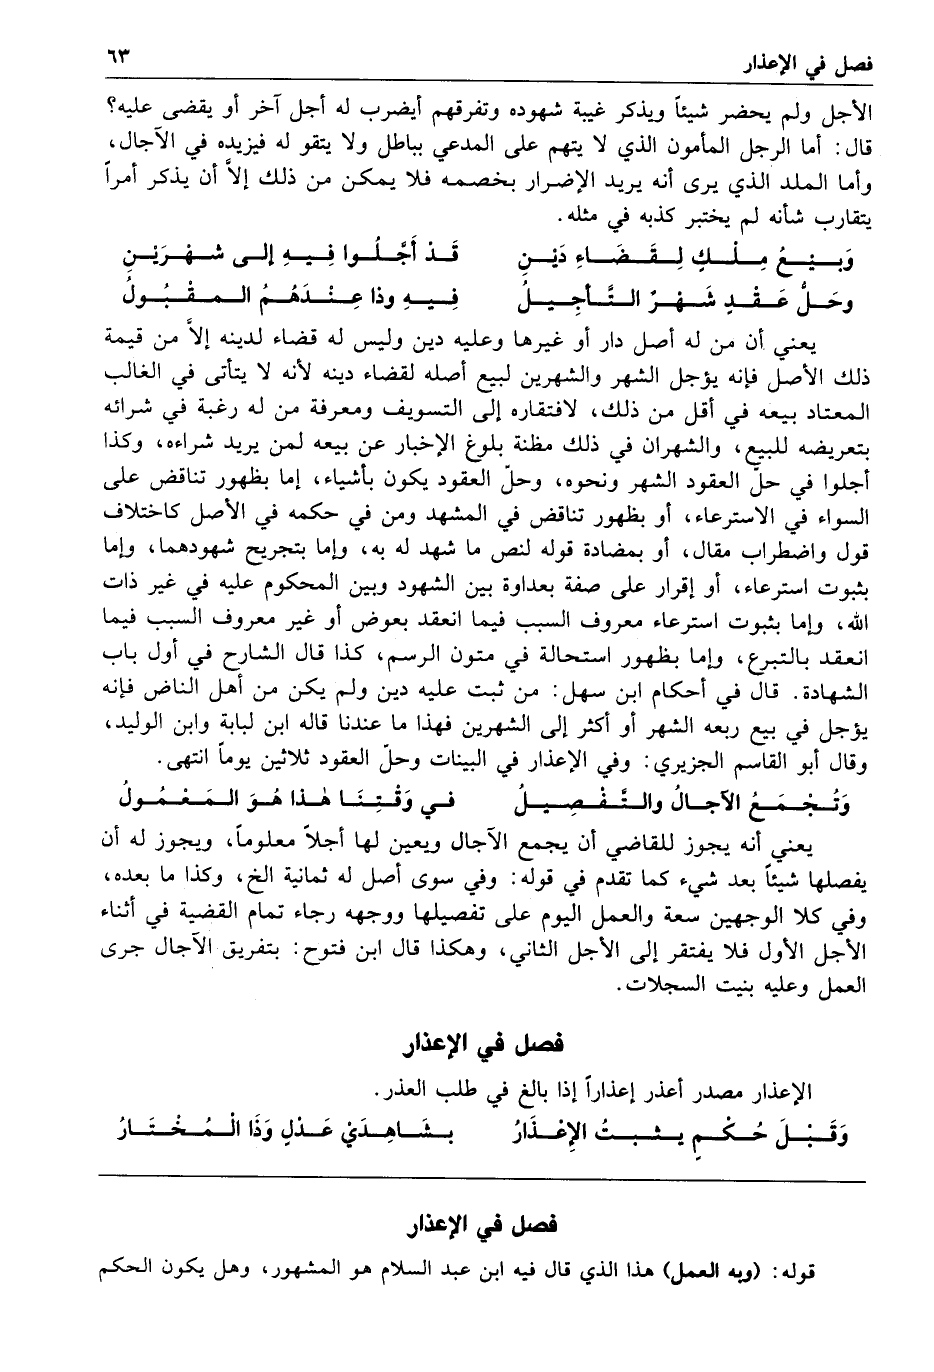 فصل في الإعذار ٦٣
الأجل ولم يحضر شيئاً ويذكر غيبة شهوده وتفرقهم أيضرب له أجل آخر أو يقضى عليه؟
قال: أما الرجل المأمون الذي لا يتهم على المدعي بباطل ولا يتقو له فيزيده في الآجال،
وأما الملد الذي يرى أنه يريد الإضرار بخصمه فلا يمكن من ذلك إلاَّ أن يذكر أمراً
يتقارب شأنه لم يختبر كذبه في مثله.
وَبَيْعُ مِلْكٍ لِقَضَاءِ دَيْنِ قَدْ أَجَّلُوا فِيهِ إلى شَهْرَيْنِ
وحَلُّ عَقْدٍ شَهْرٌ التَّأجِيلُ فِيهِ وذا عِنْدَهُمُ المقْبُولُ
يعني أن من له أصل دار أو غيرها وعليه دين وليس له قضاء لدينه إلاَّ من قيمة
ذلك الأصل فإنه يؤجل الشهر والشهرين لبيع أصله لقضاء دينه لأنه لا يتأتى في الغالب
المعتاد بيعه في أقل من ذلك، لافتقاره إلى التسويف ومعرفة من له رغبة في شرائه
بتعريضه للبيع، والشهران في ذلك مظنة بلوغ الإخبار عن بيعه لمن يريد شراءه، وكذا
أجلوا في حلّ العقود الشهر ونحوه، وحلّ العقود يكون بأشياء، إما بظهور تناقض على
السواء في الاسترعاء، أو بظهور تناقض في المشهد ومن في حكمه في الأصل كاختلاف
قول واضطراب مقال، أو بمضادة قوله لنص ما شهد له به، وإما بتجريح شهودهما، وإما
بثبوت استرعاء، أو إقرار على صفة بعداوة بين الشهود وبين المحكوم عليه في غير ذات
الله، وإما بثبوت استرعاء معروف السبب فيما انعقد بعوض أو غير معروف السبب فيما
انعقد بالتبرع، وإما بظهور استحالة في متون الرسم، كذا قال الشارح في أول باب
الشهادة. قال في أحكام ابن سهل: من ثبت عليه دين ولم يكن من أهل الناض فإنه
يؤجل في بيع ربعه الشهر أو أكثر إلى الشهرين فهذا ما عندنا قاله ابن لبابة وابن الوليد،
وقال أبو القاسم الجزيري: وفي الإعذار في البينات وحلّ العقود ثلاثين يوماً انتهى.
وَتُجْمَعُ الآجالُ والتَّفْصِيلُ في وَقْتِنَا هٰذا هُوَ المَعْمُولُ
يعني أنه يجوز للقاضي أن يجمع الآجال ويعين لها أجلاً معلوماً، ويجوز له أن
يفصلها شيئاً بعد شيء كما تقدم في قوله: وفي سوى أصل له ثمانية الخ، وكذا ما بعده،
وفي كلا الوجهين سعة والعمل اليوم على تفصيلها ووجهه رجاء تمام القضية في أثناء
الأجل الأول فلا يفتقر إلى الأجل الثاني، وهكذا قال ابن فتوح: بتفريق الآجال جرى
العمل وعليه بنيت السجلات.
فصل في الإعذار
الإعذار مصدر أعذر إعذاراً إذا بالغ في طلب العذر.
وَقَبْلَ حُكْمٍ يثبتُ الإعْذَارُ بشَاهِدَيْ عَدْلٍ وَذَا الْمُخْتَارُ
فصل في الإعذار
قوله: (وبه العمل) هذا الذي قال فيه ابن عبد السلام هو المشهور، وهل يكون الحكم